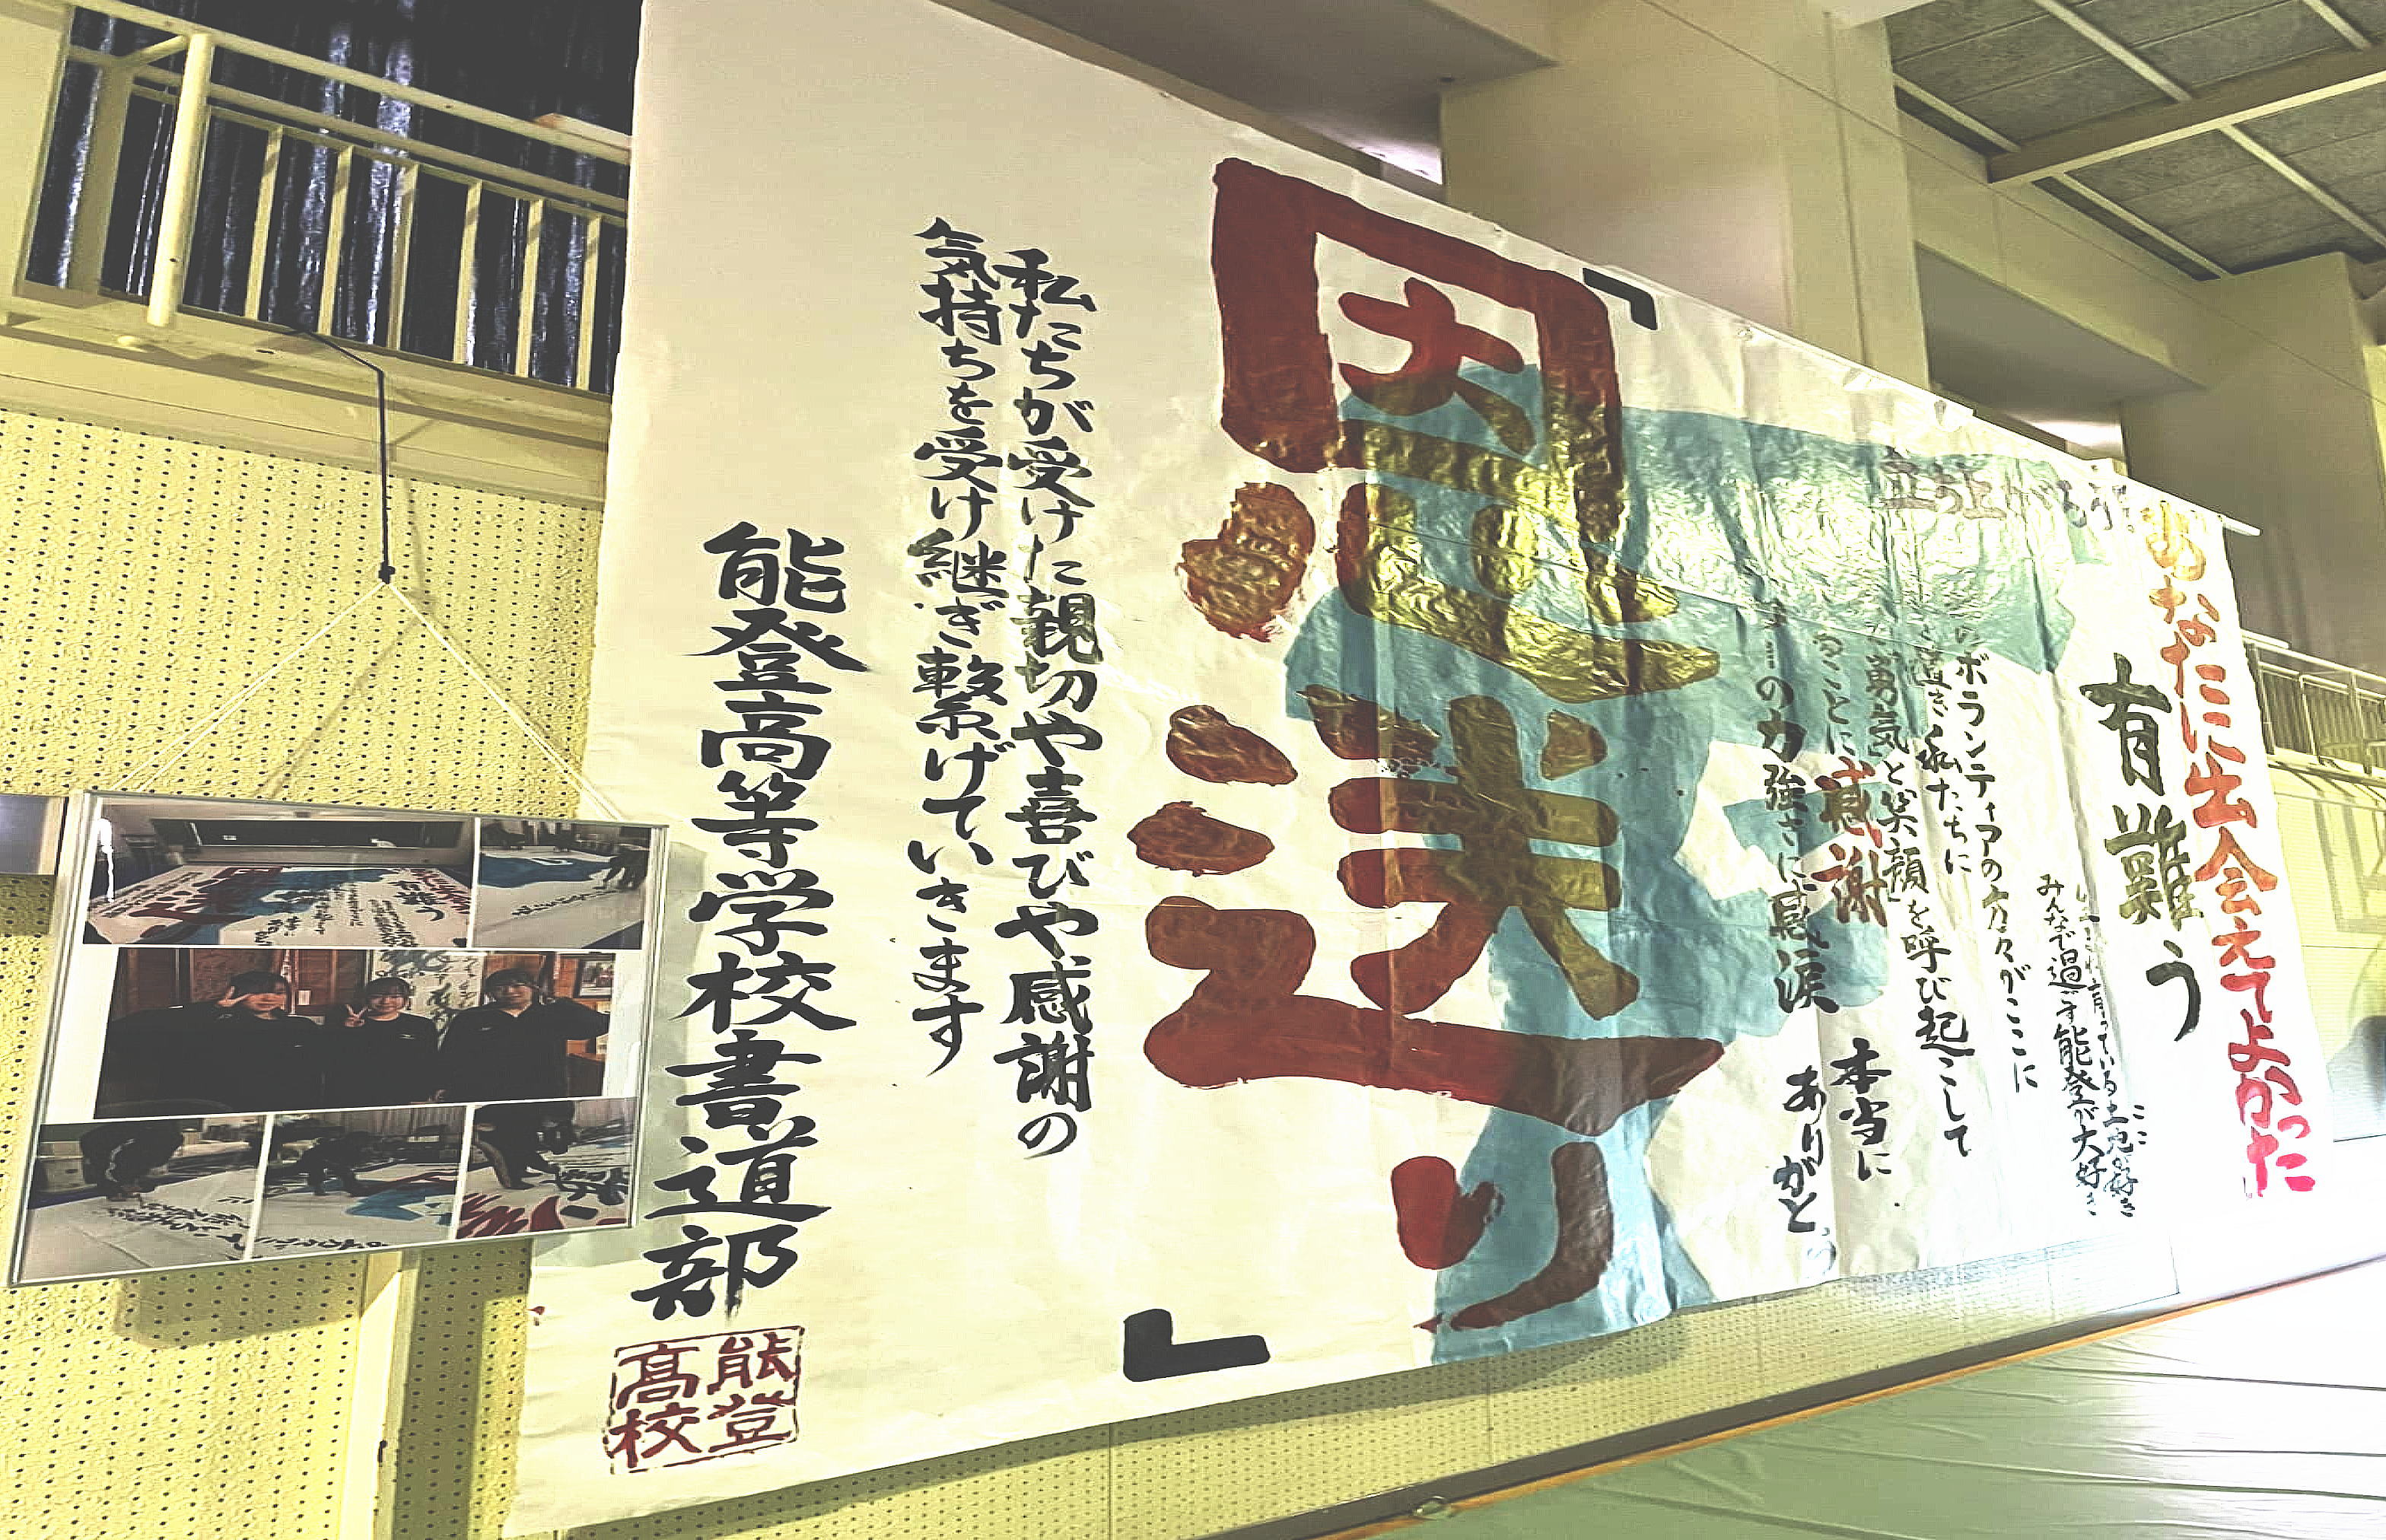 あなたに出会えてよかった
有難う
みんなで過ごす能登が大好き
ボランティアの方々がここに
私たちに
「勇気と笑顔」を呼び起こして
感謝
の力強さに感涙
本当に
ありがとう
「恩送り」
私たちが受けた親切や喜びや感謝の
気持ちを受け継ぎ繋げていきます
能登高等学校書道部
能登
高校